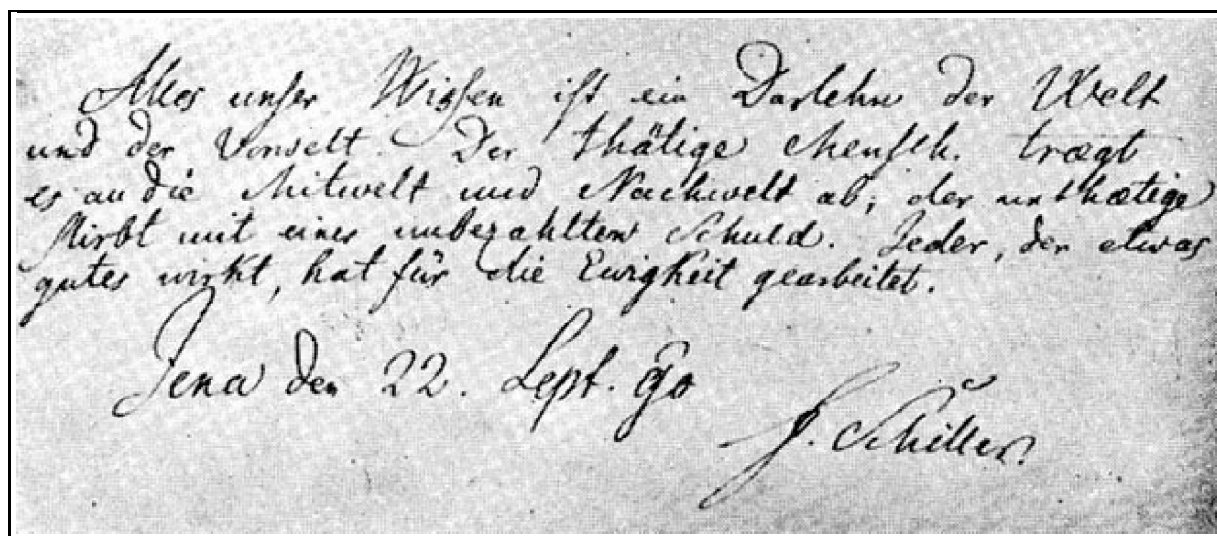 Alles unser Wissen ist ein Darlehn der Welt
und der Vorwelt. Der thätige Mensch. trægt
es an die Mitwelt und Nachwelt ab; der unthætige
stirbt mit einer unbezahlten Schuld. Jeder, der etwas
gutes wirkt, hat für die Ewigkeit gearbeitet.
Jena den 22. Sept. 90
F. Schiller.